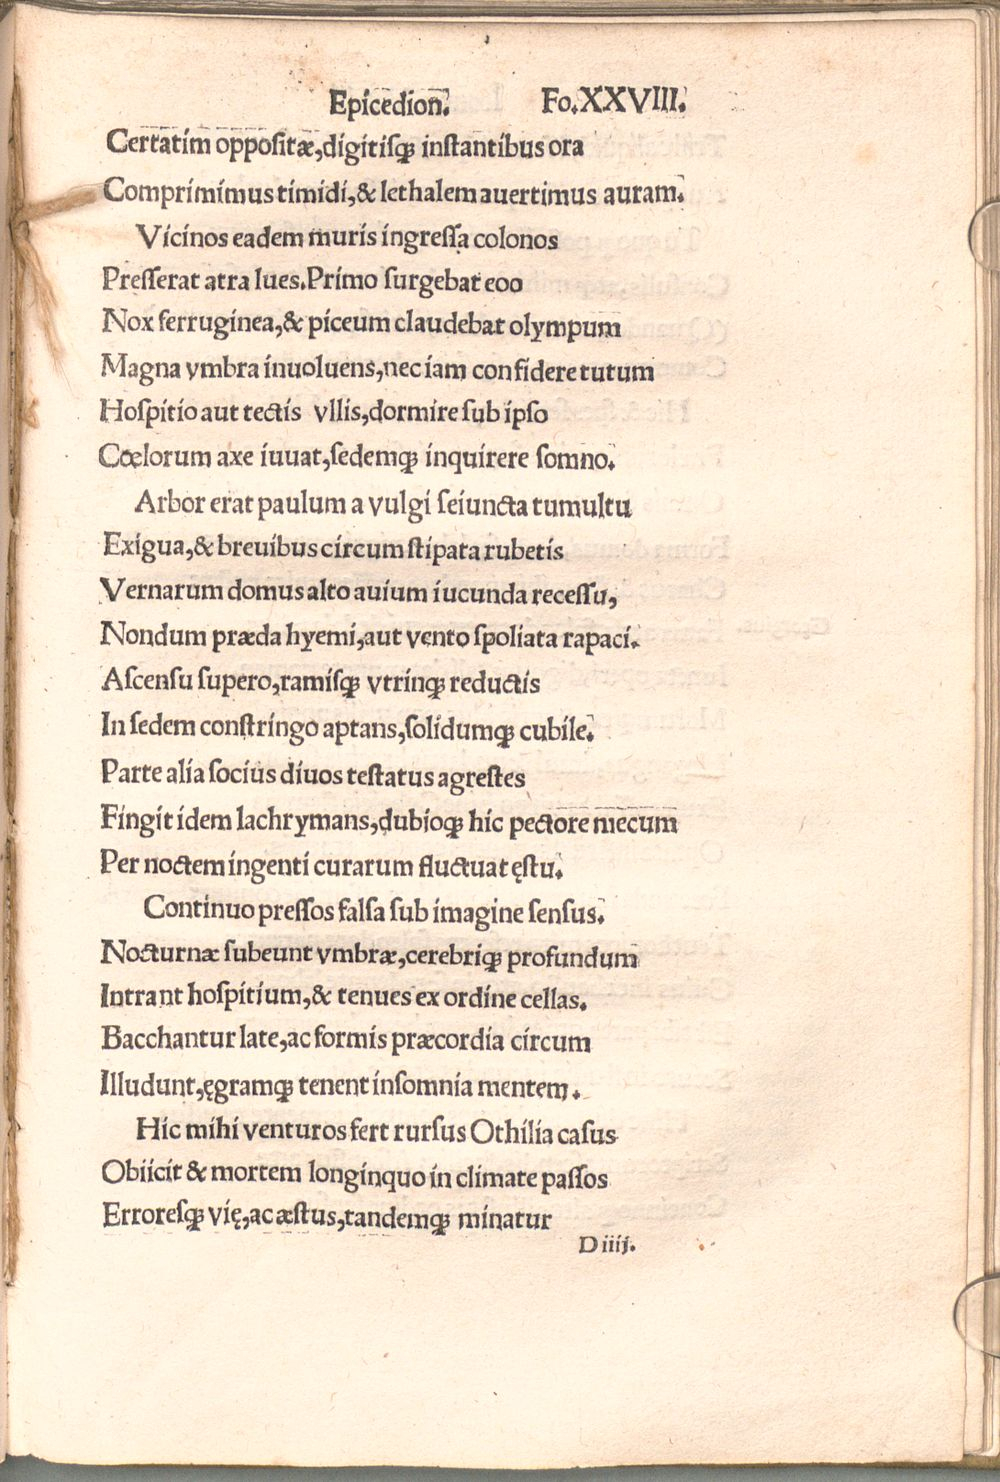 Epicedion. Fo.XXVIII.
Certatim oppositæ,digitisqꝫ instantibus ora
Comprimimus timidi,& lethalem auertimus auram.
Vicinos eadem muris ingreſſa colonos
Preſſerat atra lues.Primo ſurgebat eoo
Nox ferruginea,& piceum claudebat olympum
Magna vmbra inuoluens,nec iam confidere tutum
Hoſpitio aut tectis vllis,dormire ſub ipſo
Cœlorum axe iuuat,ſedemqꝫ inquirere ſomno.
Arbor erat paulum a vulgi ſeiuncta tumultu
Exigua,& breuibus circum ſtipata rubetis
Vernarum domus alto auium iucunda receſſu,
Nondum præda hyemi,aut vento ſpoliata rapaci.
Aſcenſu ſupero,ramiſqꝫ vtrinqꝫ reductis
In ſedem conſtringo aptans,ſolidumqꝫ cubile.
Parte alia ſocius diuos teſtatus agreſtes
Fingit idem lachrymans,dubioqꝫ hic pectore mecum
Per noctem ingenti curarum fluctuat ęſtu.
Continuo preſſos falſa ſub imagine ſenſus.
Nocturnæ ſubeunt vmbræ,cerebriqꝫ profundum
Intrant hoſpitium,& tenues ex ordine cellas.
Bacchantur late,ac formis præcordia circum
Illudunt,ęgramqꝫ tenent inſomnia mentem.
Hic mihi venturos fert rurſus Othilia caſus
Obiicit & mortem longinquo in climate paſſos
Erroreſqꝫ vię,ac æſtus,tandemqꝫ minatur
D iiij.